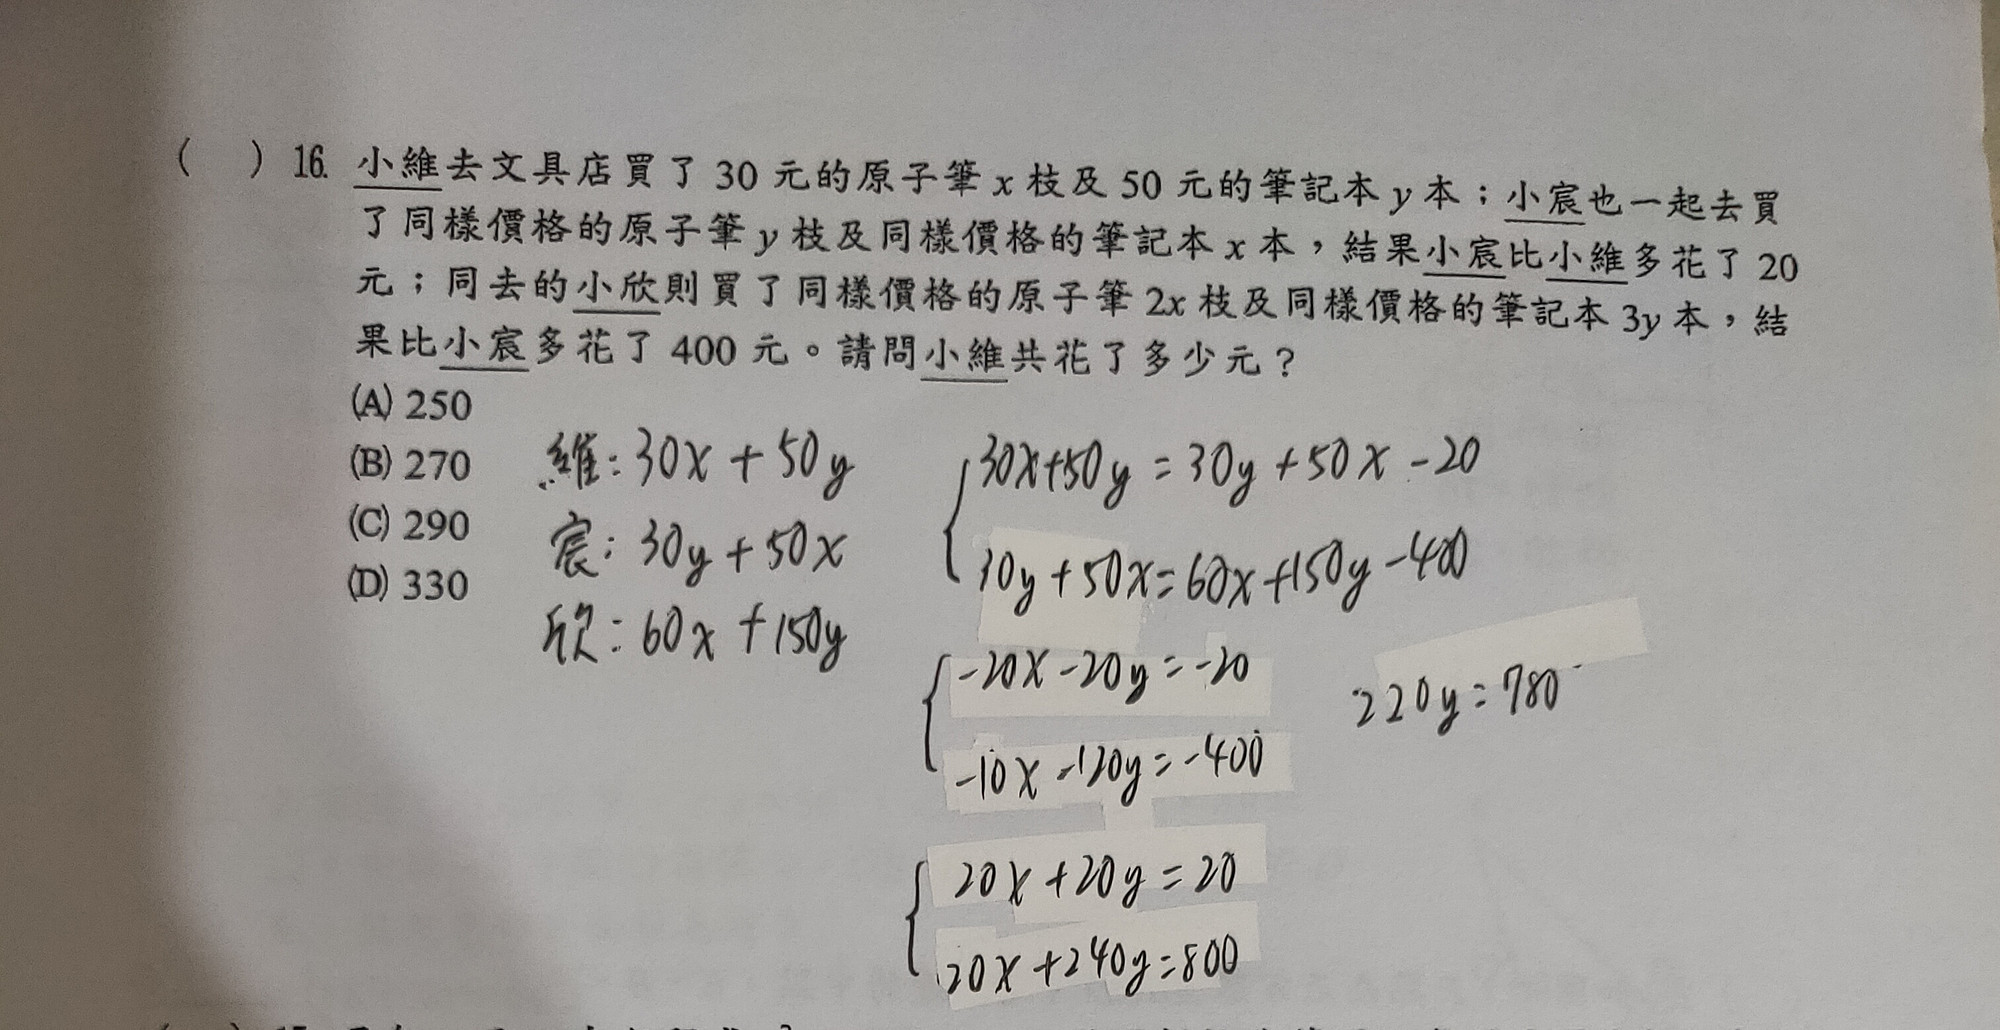 ( ) 16. 小維去文具店買了 30 元的原子筆 x 枝及 50 元的筆記本 y 本；小宸也一起去買
了同樣價格的原子筆 y 枝及同樣價格的筆記本 x 本，結果小宸比小維多花了 20
元；同去的小欣則買了同樣價格的原子筆 2x 枝及同樣價格的筆記本 3y 本，結
果比小宸多花了 400 元。請問小維共花了多少元？
(A) 250
(B) 270
(C) 290
(D) 330
維：30x + 50y
宸：30y + 50x
欣：60x + 150y
30x+50y = 30y + 50x - 20
30y + 50x = 60x + 150y - 400
-20x - 20y = -20
-10x - 120y = -400
220y = 780
20x + 20y = 20
20x + 240y = 800